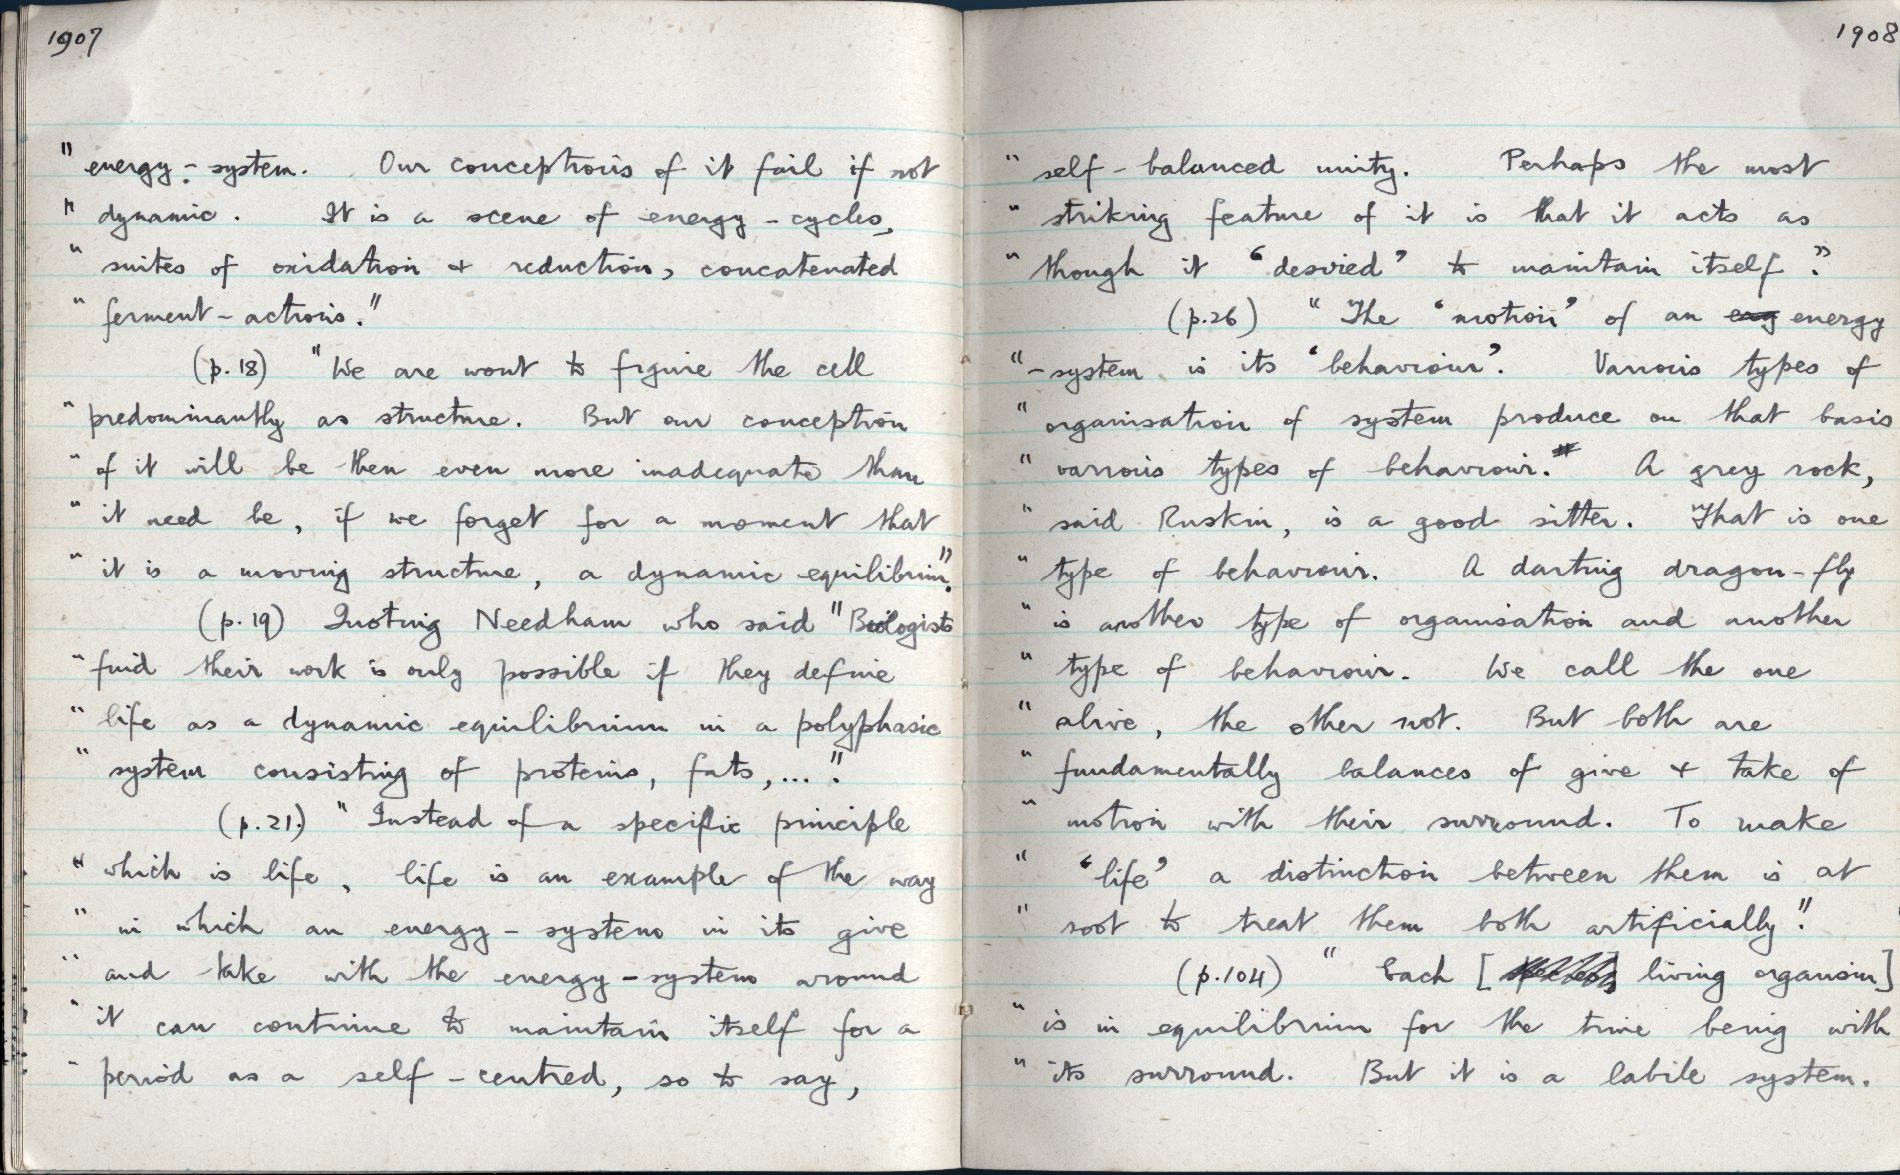 1907
" energy-system. Our conceptions of it fail if not
" dynamic. It is a scene of energy-cycles,
" suites of oxidation & reduction, concatenated
" ferment-actions."
(p.18) "We are wont to figure the cell
" predominantly as structure. But our conception
" of it will be then even more inadequate than
" it need be, if we forget for a moment that
" it is a moving structure, a dynamic equilibrium".
(p.19) Quoting Needham who said "Biologists
" find their work is only possible if they define
" life as a dynamic equilibrium in a polyphasic
" system consisting of proteins, fats,...".
(p.21.) "Instead of a specific principle
" which is life, life is an example of the way
" in which an energy-system in its give
" and take with the energy-system around
" it can continue to maintain itself for a
" period as a self-centred, so to say,
1908
" self-balanced unity. Perhaps the most
" striking feature of it is that it acts as
" though it 'desired' to maintain itself."
(p.26) "The 'motion' of an erg energy
"-system is its 'behaviour'. Various types of
" organisation of system produce on that basis
" various types of behaviour. A grey rock,
" said Ruskin, is a good sitter. That is one
" type of behaviour. A darting dragon-fly
" is another type of organisation and another
" type of behaviour. We call the one
" alive, the other not. But both are
" fundamentally balances of give & take of
" motion with their surround. To make
" 'life' a distinction between them is at
" root to treat them both artificially".
(p.104) " Each [ living organism]
" is in equilibrium for the time being with
" its surround. But it is a labile system.